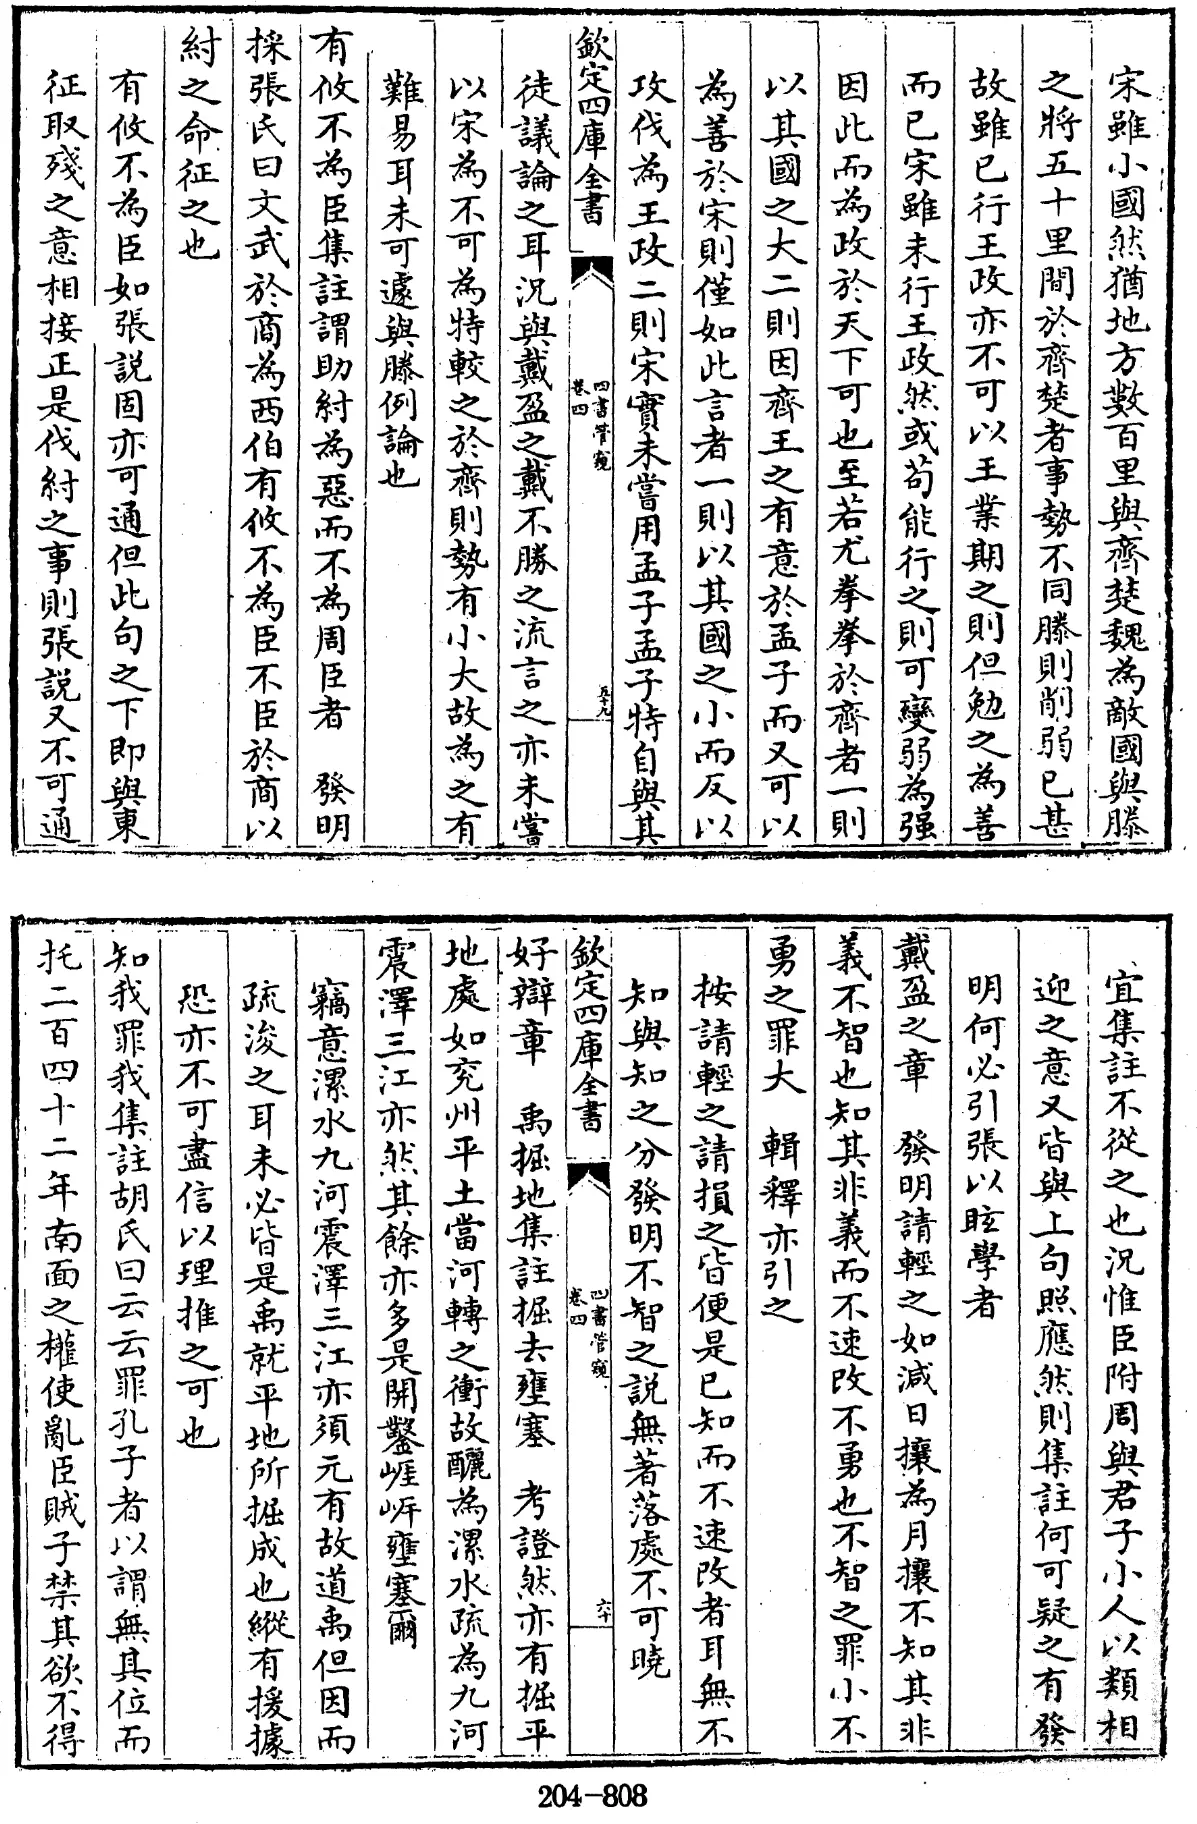 宋雖小國然猶地方數百里與齊楚魏為敵國與滕
之將五十里間於齊楚者事勢不同滕則削弱已甚
故雖已行王政亦不可以王業期之則但勉之為善
而已宋雖未行王政然或茍能行之則可變弱為强
因此而為政於天下可也至若尤拳拳於齊者一則
以其國之大二則因齊王之有意於孟子而又可以
為善於宋則僅如此言者一則以其國之小而反以
攻伐為王政二則宋實未嘗用孟子孟子特自與其
欽定四庫全書
四書管窺
卷四
五十九
徒議論之耳況與戴盈之戴不勝之流言之亦未嘗
以宋為不可為特較之於齊則勢有小大故為之有
難易耳未可遽與滕例論也
有攸不為臣集註謂助紂為惡而不為周臣者 發明
採張氏曰文武於商為西伯有攸不為臣不臣於商以
紂之命征之也
有攸不為臣如張說固亦可通但此句之下即與東
征取殘之意相接正是伐紂之事則張說又不可通
宜集註不從之也況惟臣附周與君子小人以類相
迎之意又皆與上句照應然則集註何可疑之有發
明何必引張以眩學者
戴盈之章 發明請輕之如減日攘為月攘不知其非
義不智也知其非義而不速改不勇也不智之罪小不
勇之罪大 輯釋亦引之
按請輕之請損之皆便是已知而不速改者耳無不
知與知之分發明不智之說無著落處不可曉
欽定四庫全書
四書管窺
卷四
六十
好辯章 禹掘地集註掘去壅塞 考證然亦有掘平
地處如兖州平土當河轉之衝故釃為漯水疏為九河
震澤三江亦然其餘亦多是開鑿崕岸壅塞爾
竊意漯水九河震澤三江亦須元有故道禹但因而
疏浚之耳未必皆是禹就平地所掘成也縱有援據
恐亦不可盡信以理推之可也
知我罪我集註胡氏曰云云罪孔子者以謂無其位而
托二百四十二年南面之權使亂臣賊子禁其欲不得
204-808